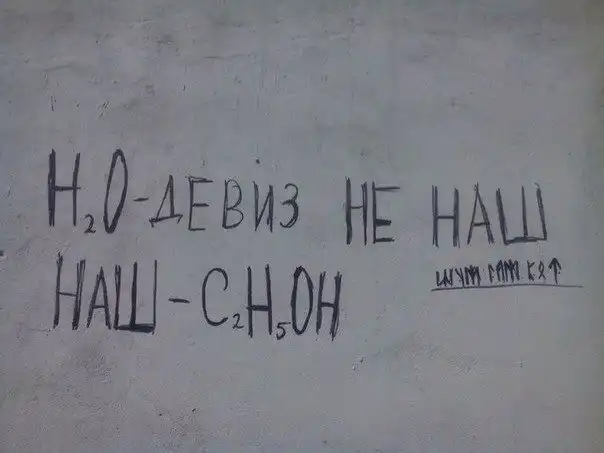 H₂O-ДЕВИЗ НЕ НАШ
НАШ-C₂H₅OH